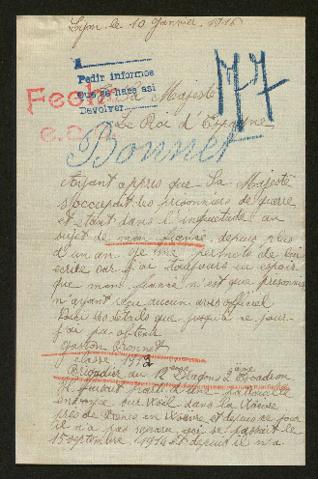 Lyon le 10 Janvier 1916
Pedir informes
que se hara asi
Devolver
Fecha
e.c.
A Sa Majesté
Le Roi d'Espagne
77
Bonnet
Ayant appris que Sa Majesté
s'occupait des prisonniers de guerre
et étant dans l'inquiétude au
sujet de mon fiancé depuis plus
d'un an je me permets de lui
écrire car j'ai toujours eu espoir
que mon fiancé n'est que prisonnier
n'ayant reçu aucun avis officiel
Voici les détails que jusqu'à ce jour
j'ai pu obtenir
Gaston Bonnet
classe 1912
Brigadier au 12 ème Dragons 2 ème Escadron
Il faisait partie d'une patrouille
envoyée sur dans la Woëvre
près de en Woëvre et depuis ce jour
il n'a pas reparu, ceci se passait le
15 septembre 1914 et depuis il n'a